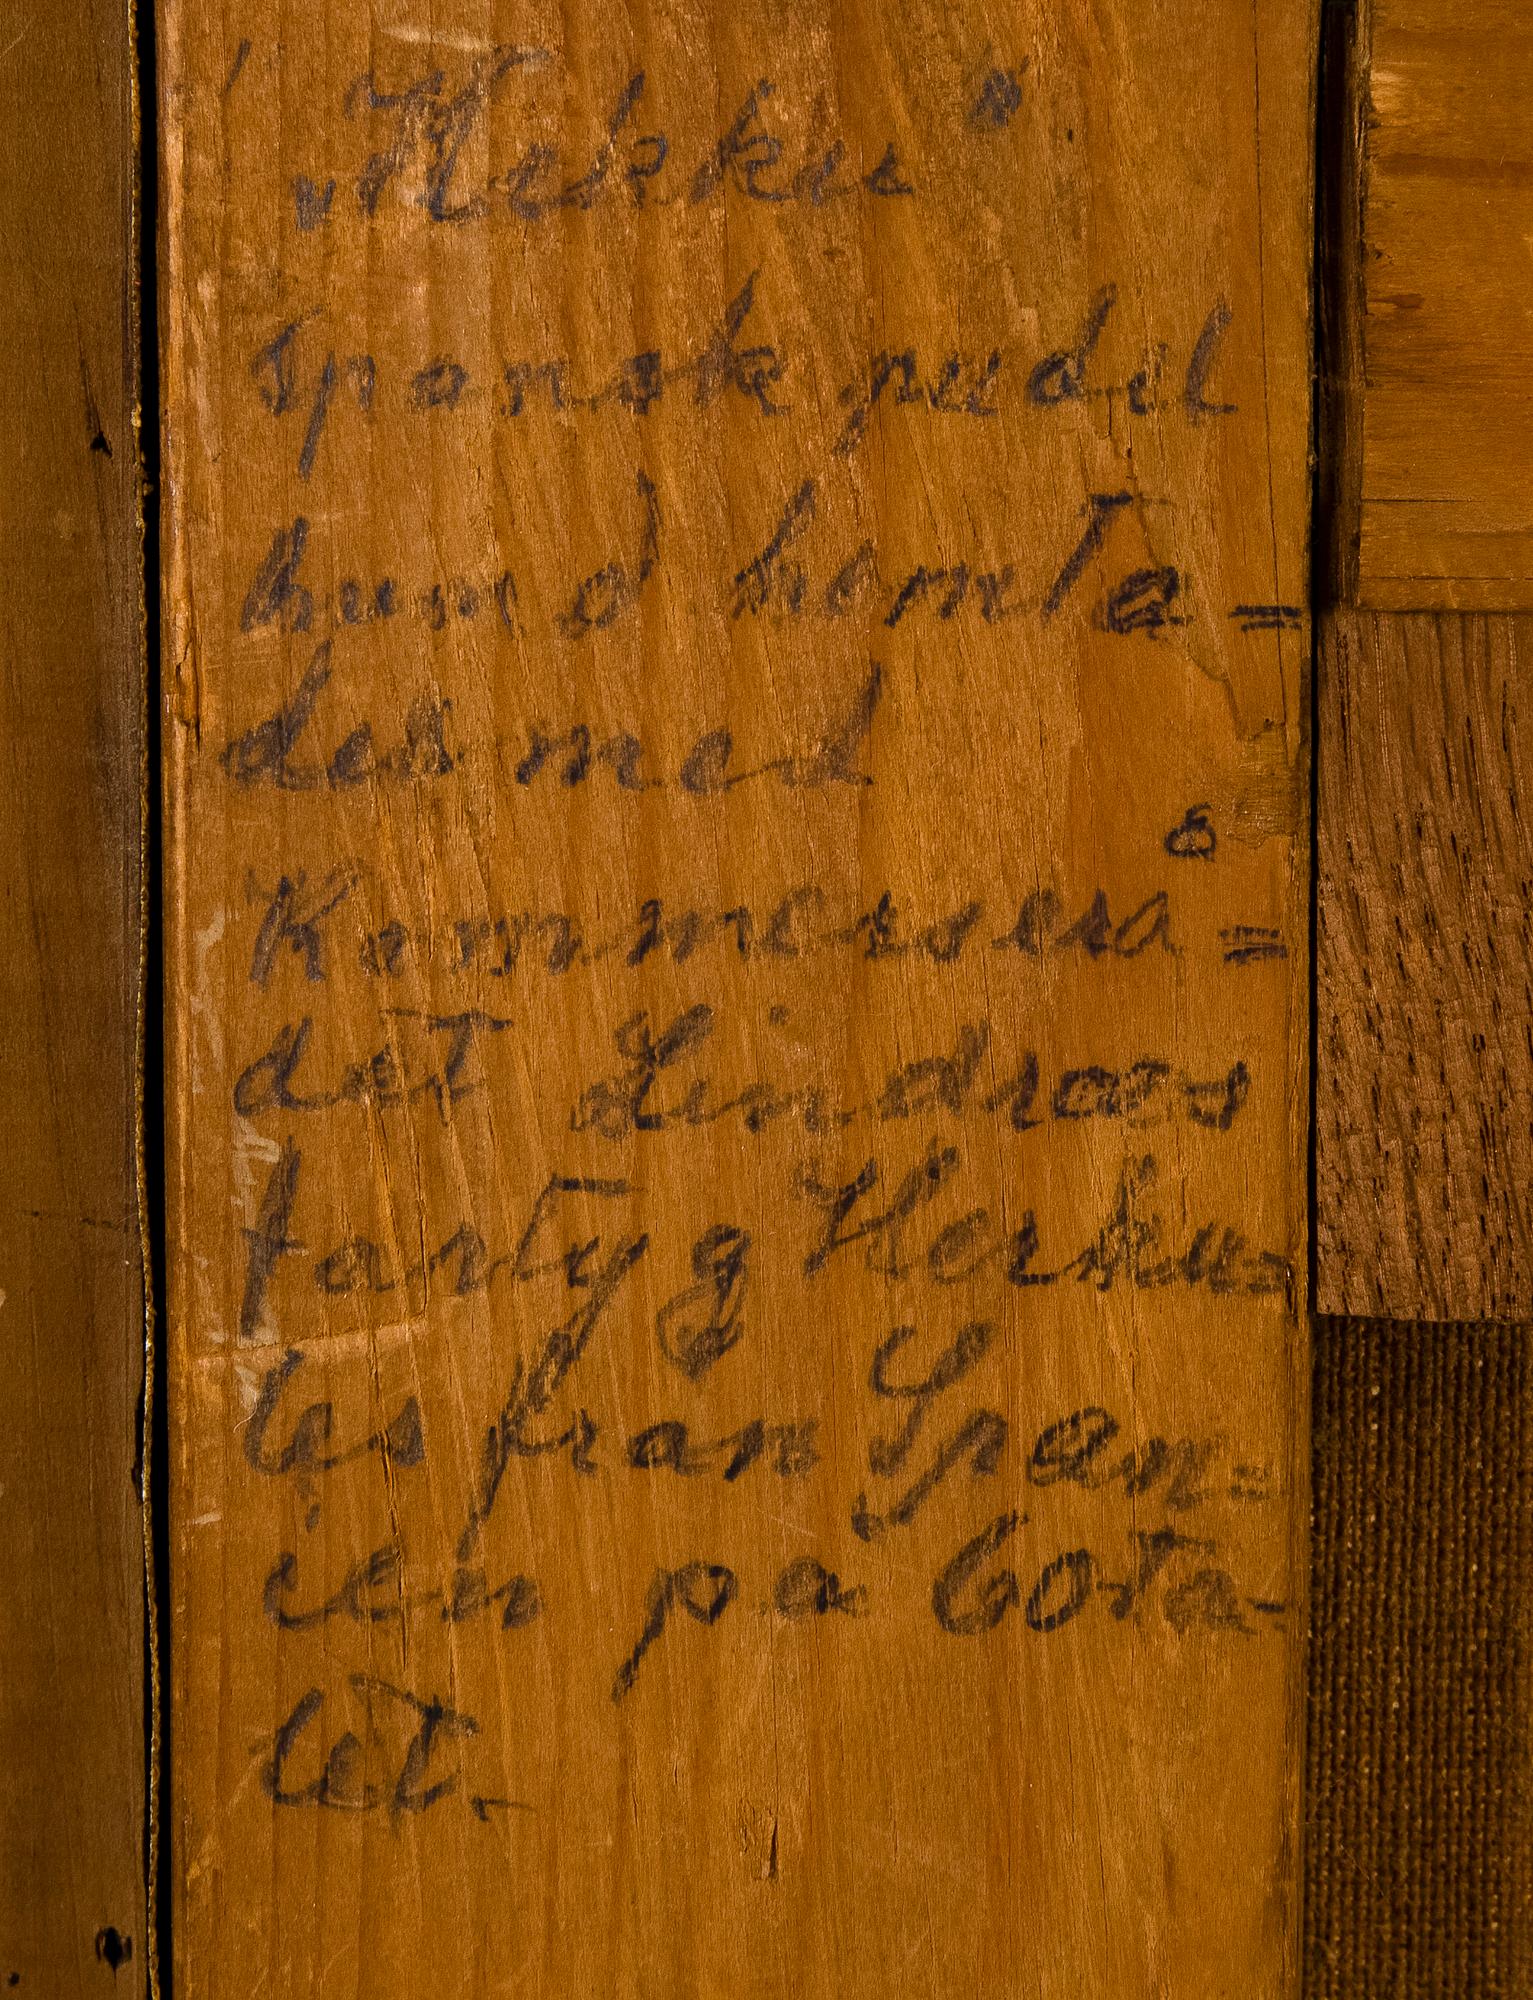 „Hekku“
Spansk pudel
hund hemta=
des med
Kommerserå=
det Lindroos
fartyg Herku=
les fran Span=
ien på 60ta-
let.